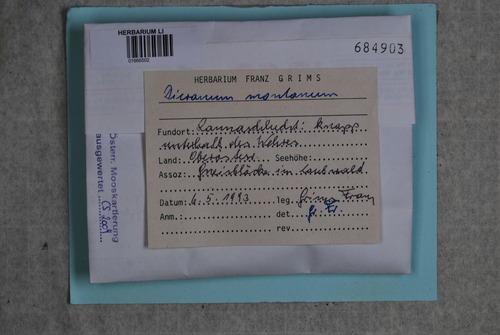 HERBARIUM LI
01666502
684903
HERBARIUM FRANZ GRIMS
Dicranum montanum
Fundort: Rannaschlucht: knapp
unterhalb des Wehres
Land: Oberösterr. Seehöhe:
Assoz: Gneisblöcke im Laubwald
Datum: 6.5.1993 leg. Grims Franz
Anm.: det. Gr. Fr.
rev.
Österr. Mooskartierung
ausgewertet CS 2009